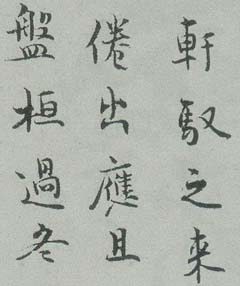 軒馭之来
倦出應且
盤桓過冬